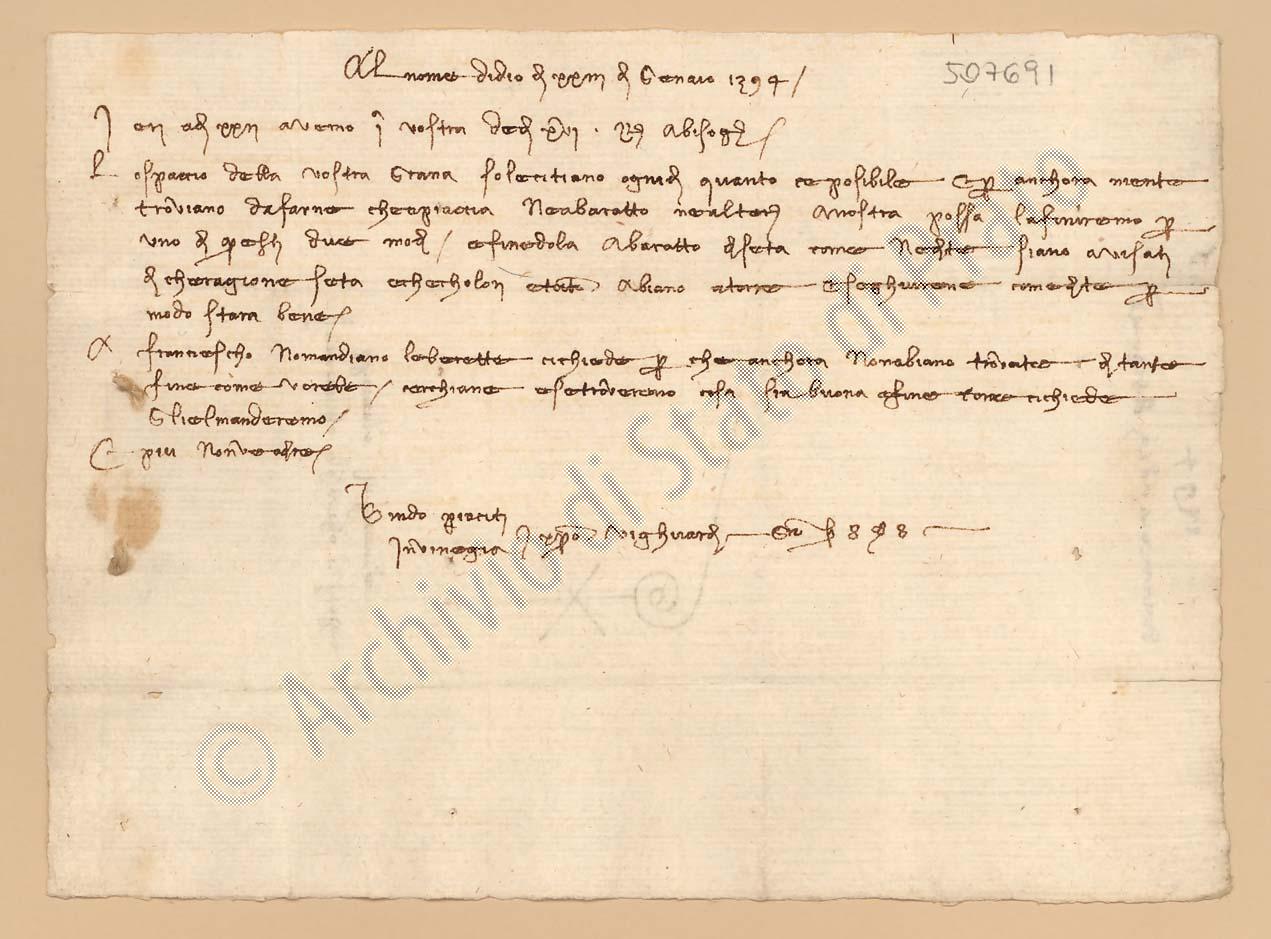 Al nome di dio dì xxiii di Genaio 1394
507691
Ieri a dì xxii avemo 1ª vostra de dì xvi. Risp. Abisogn.
Lo spaccio della vostra Grana solecitiano ogni dì quanto ce posibile E per anchora niente
troviano dafarne che piaccia Neabaratto nealteri Anostra possa lafiniremo per
uno di questi due modi / efinendola Abaratto di seta come Ne dite siano avisati
di che ragione seta e che cholori e tutto Abiano a torre E seghuirene come dite per
modo stara bene
A francescho Nomandiano leberette cichiede per che anchora Nonabiano trovate di tante
fine come vorebe / cerchiane e se troveremo cosa sia buona e fine come cichiede
Glielmanderemo /
E piu Nonve a dire
Bindo piaciti
Invinegia
© Archivio di Stato di Prato